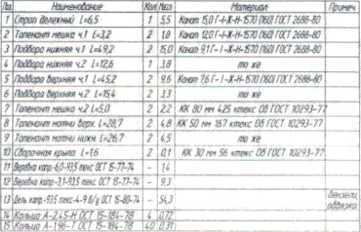 Поз. Наименование Кол Масса Материал Примеч.
1 Строп дележный L=6,5 1 5,5 Канат 15,0 Г-I-Ж-Н-1570 (160) ГОСТ 2688-80
2 Топенант мешка ч.1 L=3,2 2 1,8 Канат 12,0 Г-I-Ж-Н-1570 (160) ГОСТ 2688-80
3 Подбора нижняя ч.1 L=49,2 2 15,0 Канат 9,1 Г-I-Ж-Н-1570 (160) ГОСТ 2688-80
4 Подбора нижняя ч.2 L=12,6 1 3,8 то же
5 Подбора верхняя ч.1 L=45,2 2 9,6 Канат 7,6 Г-I-Ж-Н-1570 (160) ГОСТ 2688-80
6 Подбора верхняя ч.2 L=15,4 2 3,3 то же
7 Топенант мешка ч.2 L=5,0 2 2,2 КК 80 мм 425 ктекс ОВ ГОСТ 10293-77
8 Топенант мотни верх. L=28,7 2 4,8 КК 50 мм 167 ктекс ОВ ГОСТ 10293-77
9 Топенант мотни нижн. L=26,7 2 4,5 то же
10 Сборочная крыла L=1,6 2 0,1 КК 30 мм 56 ктекс ОВ ГОСТ 10293-77
11 Веревка капр.-6,0-93,5 текс ОСТ 15-77-74 - 1,4
12 Веревка капр.-3,1-93,5 текс ОСТ 15-77-74 - 9,3
13 Дель капр.-93,5 текс ОСТ 15-80-74 - 54,3
14 Кольцо А-2.45-Н ОСТ 15-184-78 4 0,72
15 Кольцо ОСТ 15-184-78 40 0,31